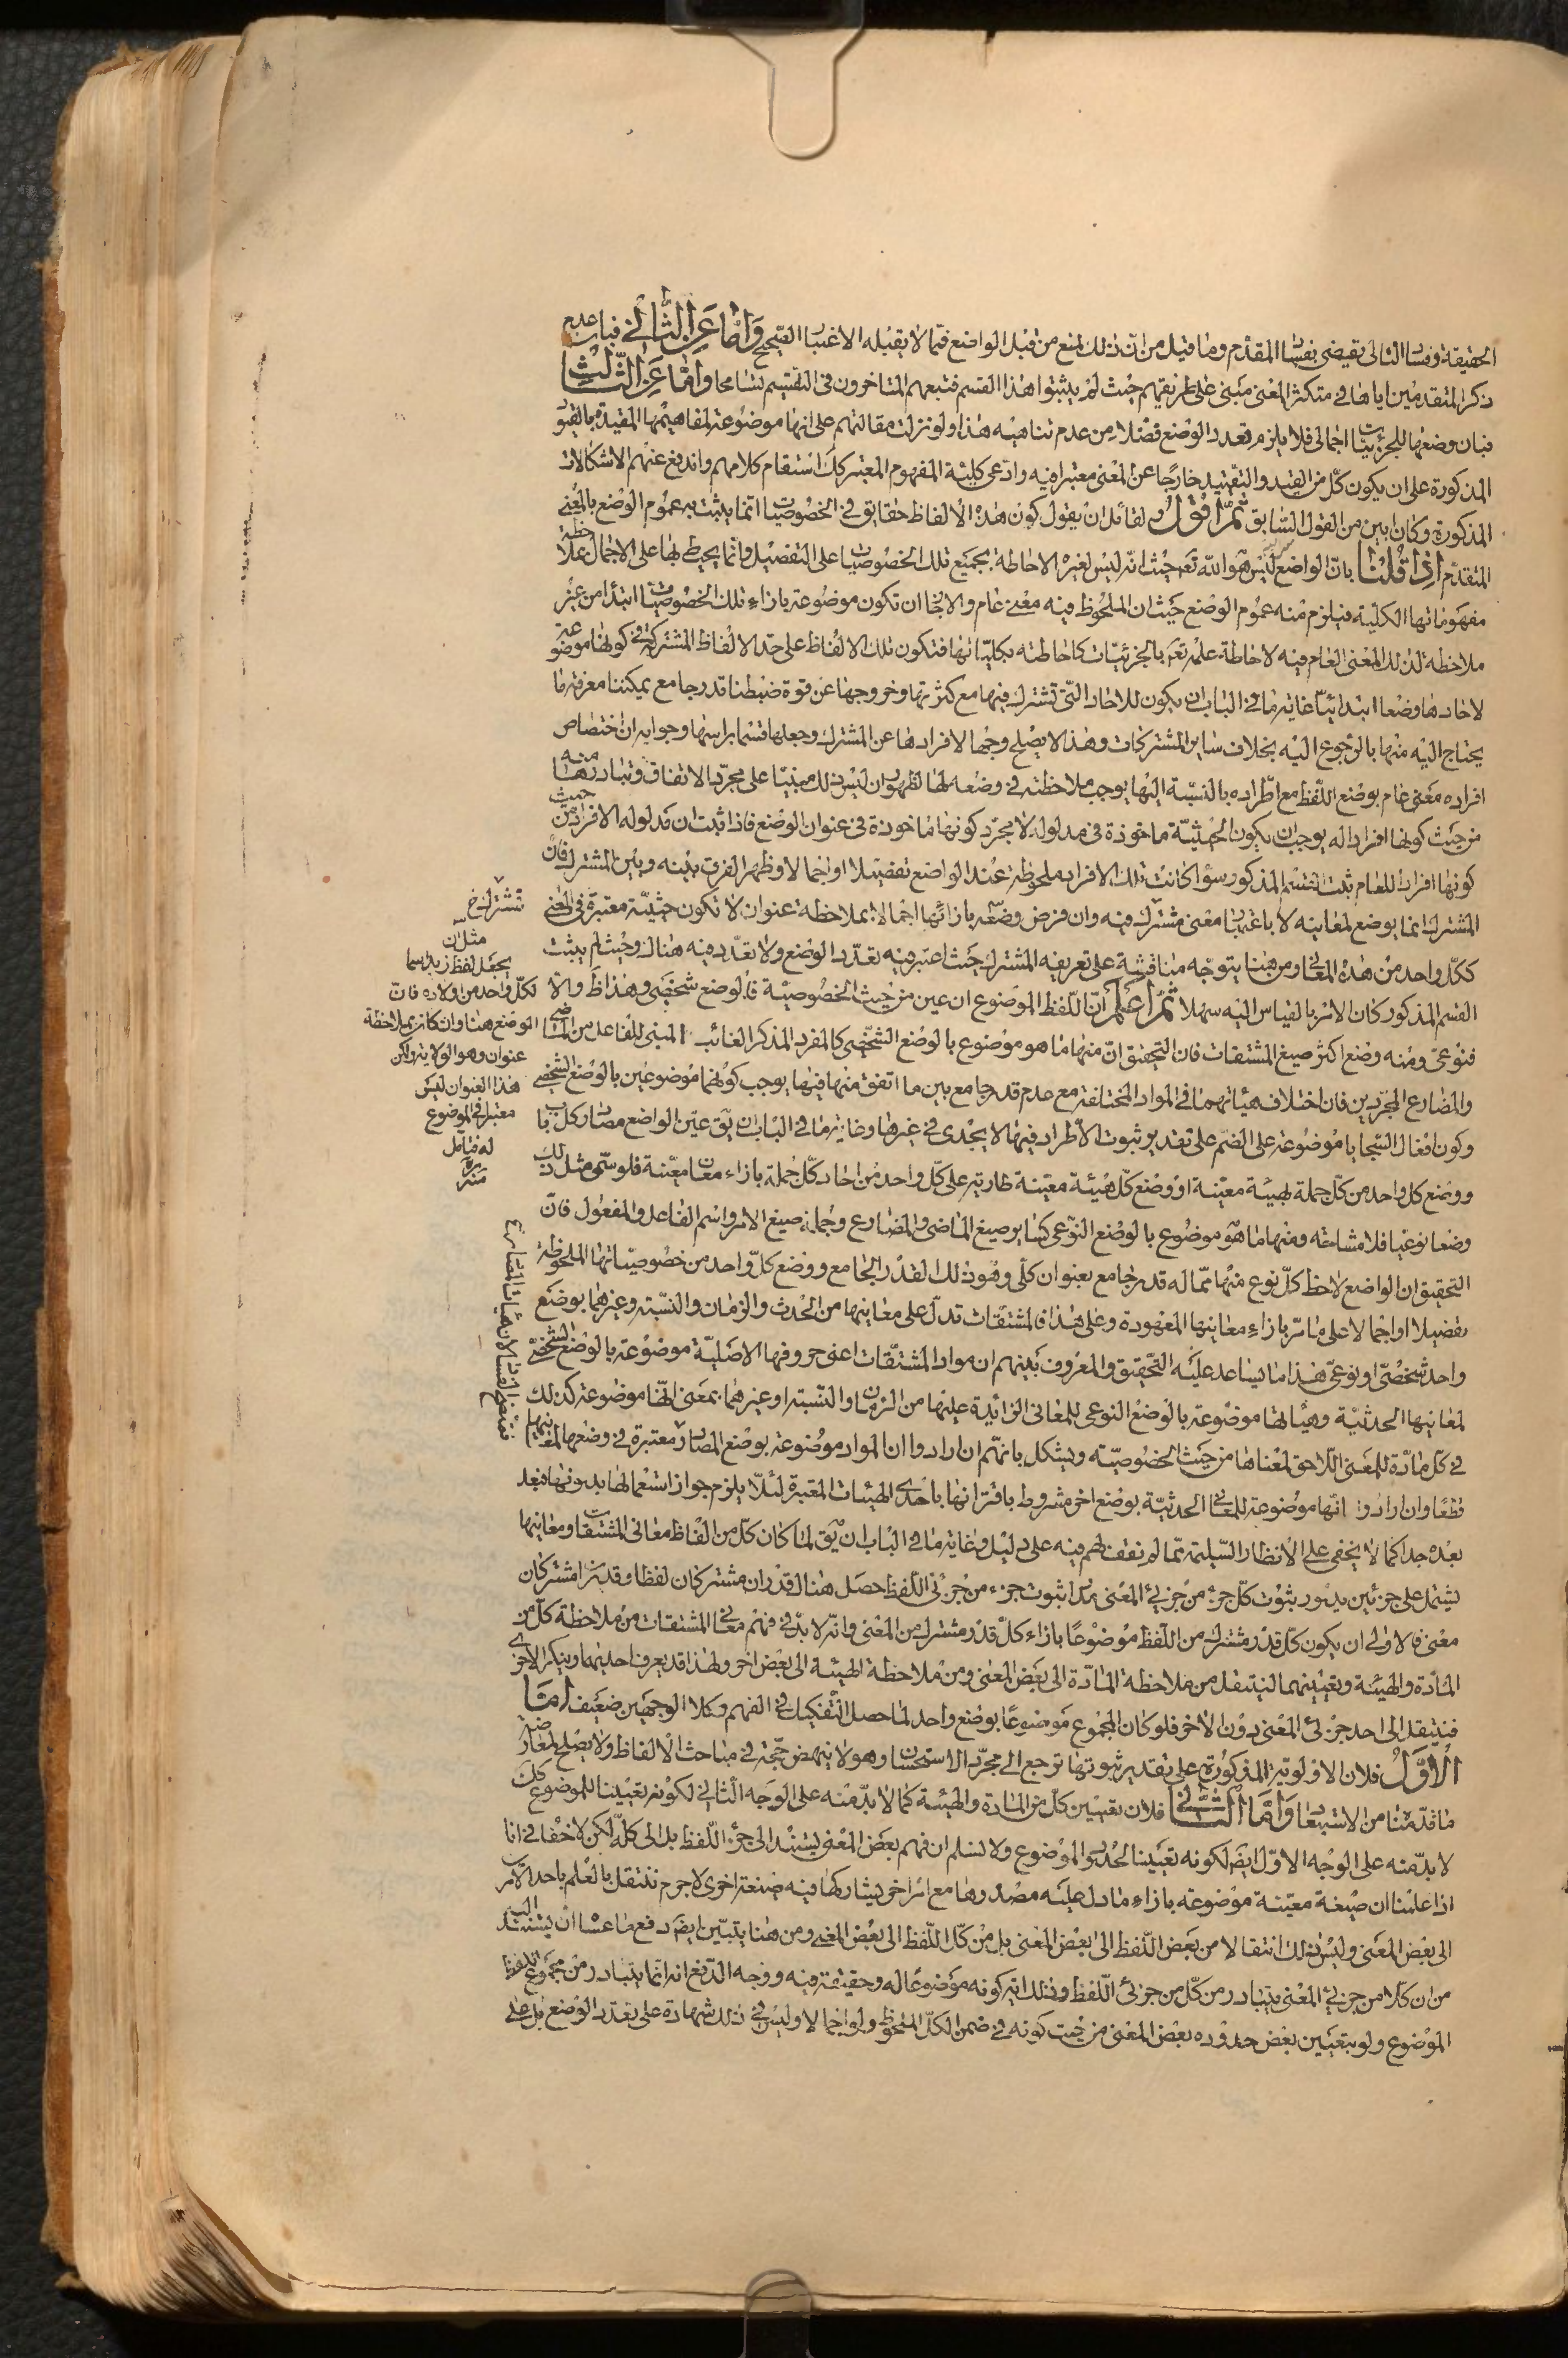 الحقيقة وفساد التالى يقتضى بفساد المقدم وما قيل من ان ذلك لمنع من قبل الواضع فمما لا يقبله الاعتبار الصحيح وأمّا عن الثاني فبان عدم
ذكر المتقدمين اياها في متكثر المعنى مبنى على طريقتهم حيث لم يثبتوا هذا القسم فتبعهم المتاخرون فى التقسيم تسامحا وأمّا عن الثالث
فبان وضعها للجزئيات اجمالى فلا يلزم تعدد الوضع فضلا من عدم تناهيه هذا ولو نزلت مقالتهم على انها موضوعة لمفاهيمها المقيدة بالقيود
المذكورة على ان يكون كل من القيد والتقييد خارجا عن المعنى معتبرا فيه وادعى كلية المفهوم المعتبر كك استقام كلامهم واندفع عنهم الاشكالات
المذكورة وكان ابين من القول السابق ثمّ اقول ولقائل ان يقول كون هذه الالفاظ حقايق فى الخصوصيات انما يثبت به عموم الوضع بالمعنى
المتقدم اذا قلنا بان الواضع ليس هو الله تعالى حيث انه ليس لغيره الاحاطة بجميع تلك الخصوصيات على التفصيل وانما يحيط بها على الاجمال بملاحظة
مفهوماتها الكلية فيلزم منه عموم الوضع حيث ان الملحوظ فيه معنى عام والا فجاز ان تكون موضوعة بازاء تلك الخصوصيات ابتداء من غير
ملاحظة لذلك المعنى العام فيه لاحاطة علمه تعالى بالجزئيات كاحاطته بكلياتها فتكون تلك الالفاظ على حد الالفاظ المشتركة في كونها موضوعة
لاحادها وضعا ابتدائيا غاية ما في الباب ان يكون للاحاد التى تشترك فيها مع كثرتها وخروجها عن قوة ضبطنا قدر جامع يمكننا معرفة ما
يحتاج اليه منها بالرجوع اليه بخلاف ساير المشتركات وهذا لا يصلح وجها لافرادها عن المشترك وجعلها قسما براسها وجوابه ان اختصاص
افراده معنى عام بوضع اللفظ مع اطراده بالنسبة اليها يوجب ملاحظته فى وضعه لها لظهور ان ليس ذلك مبنيا على مجرد الاتفاق وتبادرها منه
من حيث كونها افرادا له يوجب ان يكون الحيثية ماخوذة فى مدلوله لا مجرد كونها ماخوذة فى عنوان الوضع فاذا ثبت ان مدلوله الافراد من حيث
كونها افرادا للعام ثبت القسم المذكور سواء كانت تلك الافراد ملحوظة عند الواضع تفصيلا او اجمالا وظهر الفرق بينه وبين المشترك فان
المشترك انما يوضع لمعانيه لا باعتبار معنى مشترك فيه وان فرض وضعه بازائها اجمالا بملاحظة عنوان لا تكون حيثية معتبرة فى المعنى
ككل واحد من هذه المعاني ومن هنا يتوجه مناقشة على تعريفه المشترك حيث اعتبر فيه تعدد الوضع ولا تعدد فيه هناك وحيث لم يثبت
القسم المذكور كان الامر بالقياس اليه سهلا ثمّ اعلم ان اللفظ الموضوع ان عين من حيث الخصوصية فالوضع شخصى وهذا ظ والا
فنوعى ومنه وضع اكثر صيغ المشتقات فان التحقيق ان منها ما هو موضوع بالوضع الشخصى كالمفرد المذكر الغائب المبنى للفاعل من الماضى
والمضارع المجردين فان اختلاف هيئاتهما فى المواد المختلفة مع عدم قدر جامع بين ما اتفق منها فيها يوجب كونهما موضوعين بالوضع الشخصى
وكون افعال السجايا موضوعة على الضم على تقدير ثبوت الاطراد فيها لا يجدى فى غيرها وغاية ما في الباب ان يق عين الواضع مصادر كل باب
ووضع كل واحد من كل جملة بهيئة معينة او وضع كل هيئة معينة طارية على كل واحد من احاد كل جملة بازاء معان معينة فلو سمى مثل ذلك
وضعا نوعيا فلا مشاحة ومنها ما هو موضوع بالوضع النوعى كساير صيغ الماضى والمضارع وجملة صيغ الامر واسم الفاعل والمفعول فان
التحقيق ان الواضع لاحظ كل نوع منها مما له قدر جامع بعنوان كلى وهو ذلك القدر الجامع ووضع كل واحد من خصوصياتها الملحوظة
تفصيلا او اجمالا على ما مر بازاء معانيها المعهودة وعلى هذا فالمشتقات تدل على معانيها من الحدث والزمان والنسبة وغيرهما بوضع
واحد شخصى او نوعى هذا ما يساعد عليه التحقيق والمعروف بينهم ان مواد المشتقات اعنى حروفها الاصلية موضوعة بالوضع الشخصى
لمعانيها الحدثية وهيئاتها موضوعة بالوضع النوعى للمعانى الزائدة عليها من الزمان والنسبة او غيرهما بمعنى انها موضوعة كذلك
فى كل مادة للمعنى اللاحق لمعناها من حيث الخصوصية ويشكل بانهم ان ارادوا ان المواد موضوعة بوضع المصادر معتبرة فى وضعها لمعانيها
قطعا وان ارادوا انها موضوعة للمعانى الحدثية بوضع اخر مشروط باقترانها باحدى الهيئات المعتبرة لئلا يلزم جواز استعمالها بدونها فبعد
بعده جدا كما لا يخفى على الانظار السليمة مما لم نقف لهم فيه على دليل وغاية ما في الباب ان يق لما كان كل من الفاظ معانى المشتقات ومعانيها
يشتمل على جزئين يدور بثبوت كل جزء من جزئى المعنى مدار ثبوت جزء من جزئى اللفظ حصل هناك قدران مشتركان لفظا وقدران مشتركان
معنى فالاولى ان يكون كل قدر مشترك من اللفظ موضوعا بازاء كل قدر مشترك من المعنى وانه لا بد في فهم معانى المشتقات من ملاحظة كل من
المادة والهيئة وتعيينهما لينتقل من ملاحظة المادة الى بعض المعنى ومن ملاحظة الهيئة الى بعض اخر ولهذا قد يعرف احديهما وينكر الاخرى
فينتقل الى احد جزئى المعنى دون الاخر فلو كان المجموع موضوعا بوضع واحد لما حصل التفكيك فى الفهم وكلا الوجهين ضعيف امّا
الاوّل فلان الاولوية المذكورة على تقدير ثبوتها ترجع الى مجرد الاستحسان وهو لا ينهض حجة فى مباحث الالفاظ ولا يصلح لمعارضة
ما قدمنا من الاستبعاد وأمّا الثانى فلان تعيين كل من المادة والهيئة كما لا بد منه على الوجه الثانى لكونه تعيينا للموضوع كك
لا بد منه على الوجه الاول ايضا لكونه تعيينا لحدود الموضوع ولا نسلم ان فهم بعض المعنى يستند الى جزء اللفظ بل الى كله لكن لا خفاء فى انا
اذا علمنا ان صيغة معينة موضوعة بازاء ما دل عليه مصدرها مع امر اخر يشاركها فيه صيغة اخرى لا جرم ننتقل بالعلم باحد الامرين
الى بعض المعنى وليس ذلك انتقالا من بعض اللفظ الى بعض المعنى بل من كل اللفظ الى بعض المعنى ومن هنا يتبين ايضا دفع ما عسى ان يستند اليه
من ان كلا من جزئى المعنى يتبادر من كل من جزئى اللفظ وذلك اية كونه موضوعا له وحقيقة فيه ووجه الدفع انه انما يتبادر من مجموع اللفظ
الموضوع ولو بتعيين بعض حدوده بعض المعنى من حيث كونه فى ضمن الكل الملحوظ ولو اجمالا وليس فى ذلك شهادة على تعدد الوضع بل على
تشترك خ
مثل ان
يجعل لفظ زيد اسما
لكل واحد من اولاده فان
الوضع هنا وان كان بملاحظة
عنوان وهو الولدية ولكن
هذا العنوان ليس
معتبرا فى الموضوع
له فتامل
منه